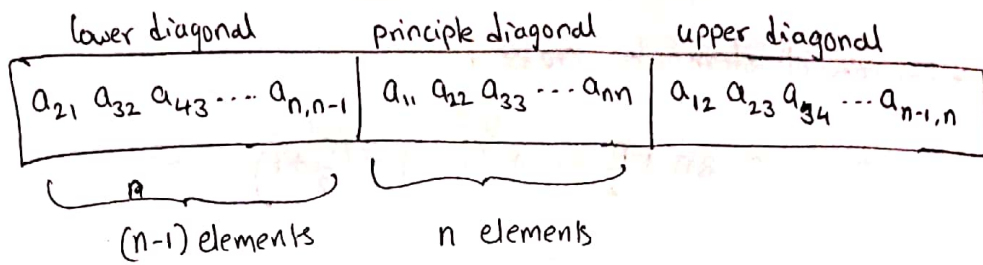 lower diagonal principle diagonal upper diagonal
a₂₁ a₃₂ a₄₃ .... aₙ,ₙ₋₁ a₁₁ a₂₂ a₃₃ ... aₙₙ a₁₂ a₂₃ a₃₄ ... aₙ₋₁,ₙ
(n-1) elements n elements